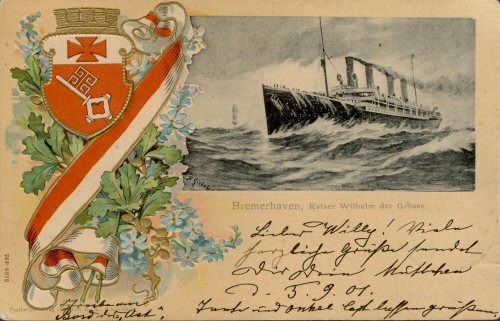 Bremerhaven, Kaiser Wilhelm der Grosse.
Lieber Willy! Viele
herzliche Grüße sendet
Dir Dein Muttchen
d. 5. 9. 01.
Tante und onkel lassen grüßen.
Bord des